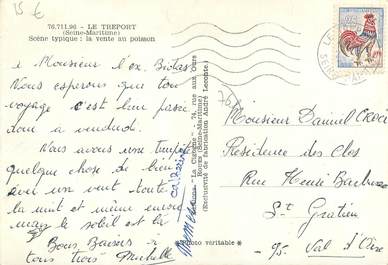 15 €
76.711.96 - LE TREPORT
(Seine-Maritime)
Scène typique : la vente au poisson
Monsieur l'ex
Nous esperons que ton
voyage c'est bien passé
Nous avons une
quelque chose de bien
avec un vent toute
la nuit et même encore
mais le soleil est là
Bons Baisers à
tous trois Michelle
"La Cigogne" - 74, rue aux Ours
Rouen (Seine-Maritime)
(Exclusivité de fabrication André Leconte)
"Photo véritable"
Monsieur Daniel
Residence des Clos
Rue Henri Barbusse
St Gratien
95. Val d'Oise